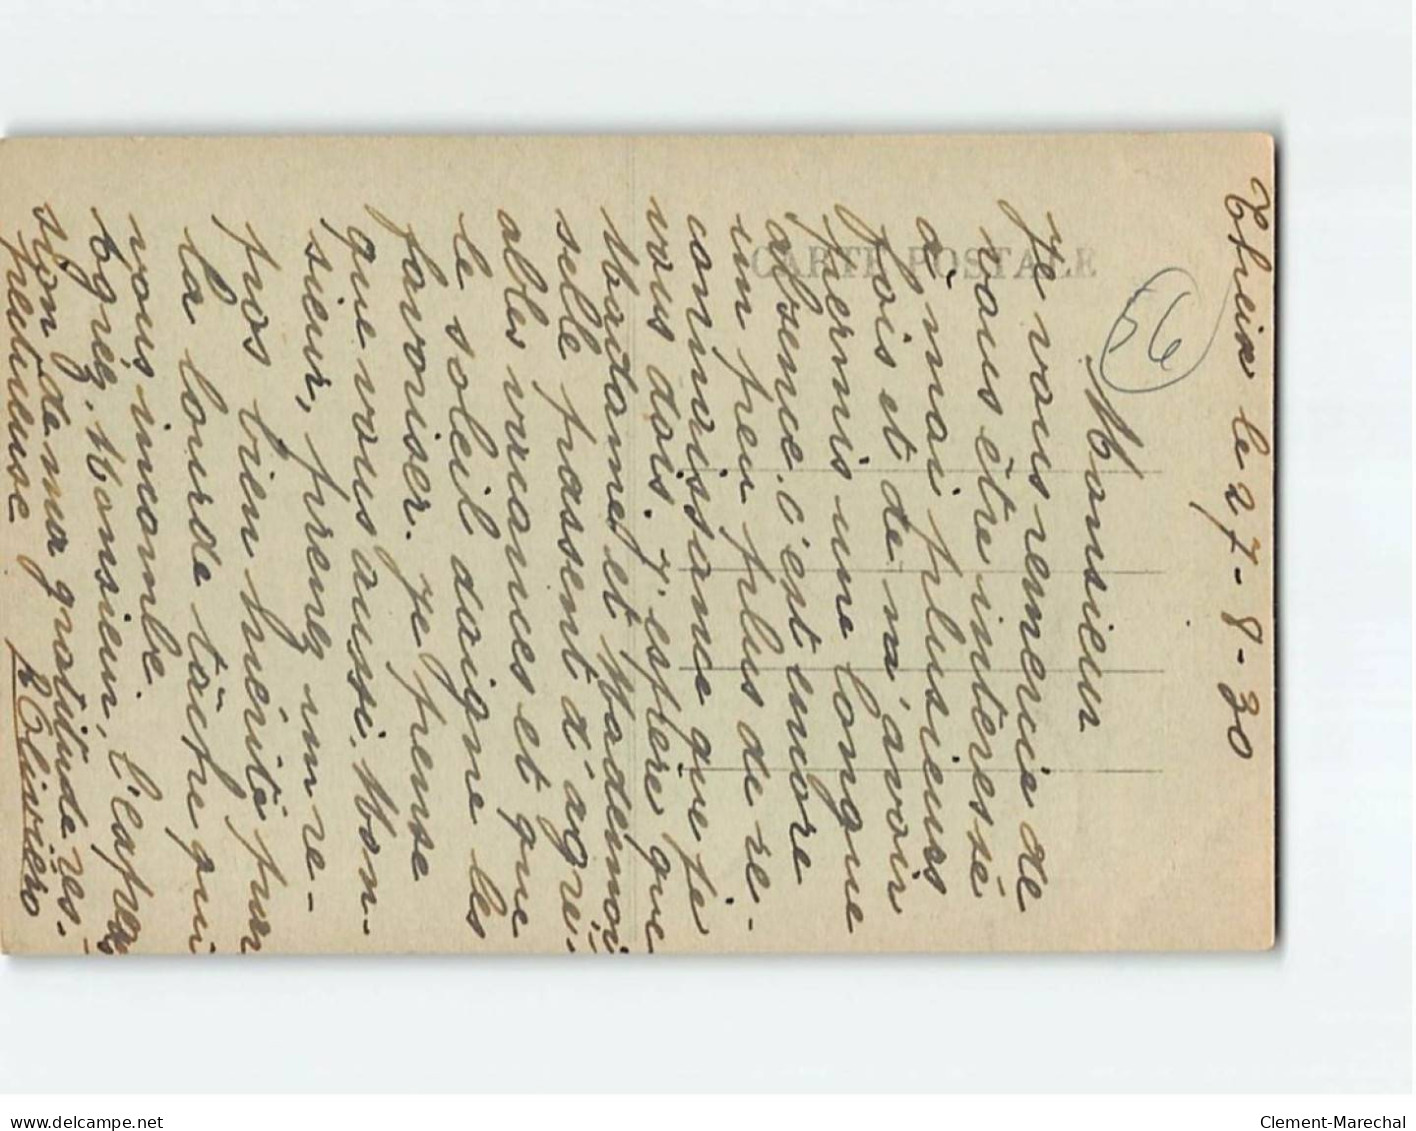 le 27-8-30
Monsieur
Je vous remercie de
vous être interessé
à moi plusieurs
fois et de m'avoir
permis une longue
absence. C'est encore
un peu plus de re-
connaissance que je
vous dois. J'espère que
Madame et Mademoi-
selle passent d'agré-
ables vacances et que
le soleil daigne les
favoriser. Je pense
que vous aussi, Mon-
sieur, prenez un re-
pos bien mérité par
la lourde tâche qui
vous incombe.
Agréez, Monsieur, l'expres-
sion de ma gratitude res-
pectueuse
CARTE POSTALE
56
delcampe.net
Clement-Marechal